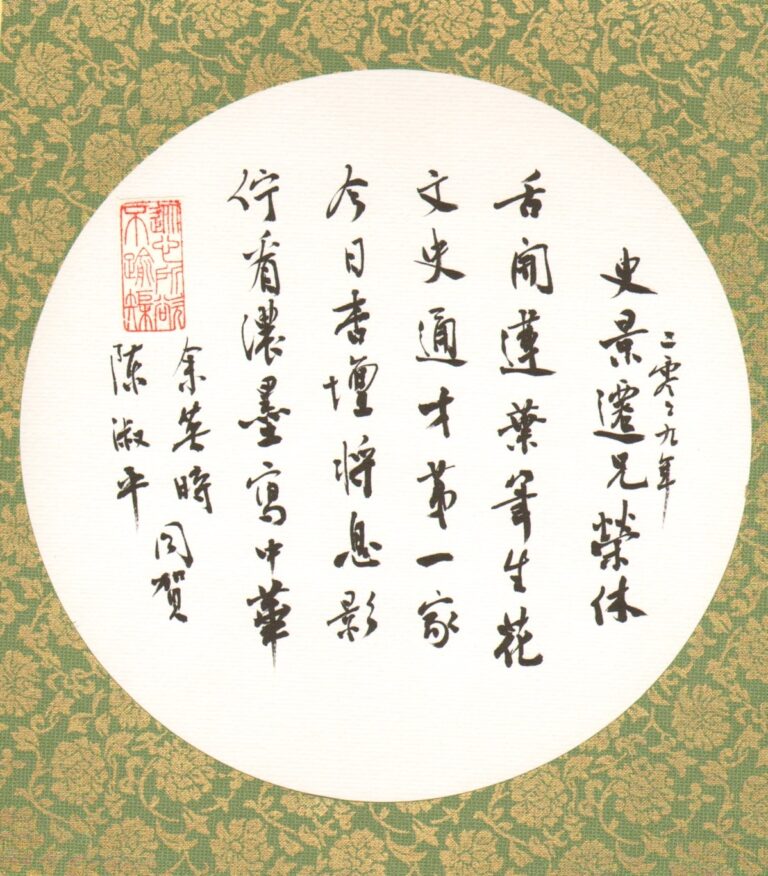 二零〻九年
史景遷兄榮休
舌開蓮葉筆生花
文史通才第一家
今日杏壇將息影
佇看濃墨寫中華
余英時
陳淑平
同賀
從心所欲
不踰矩